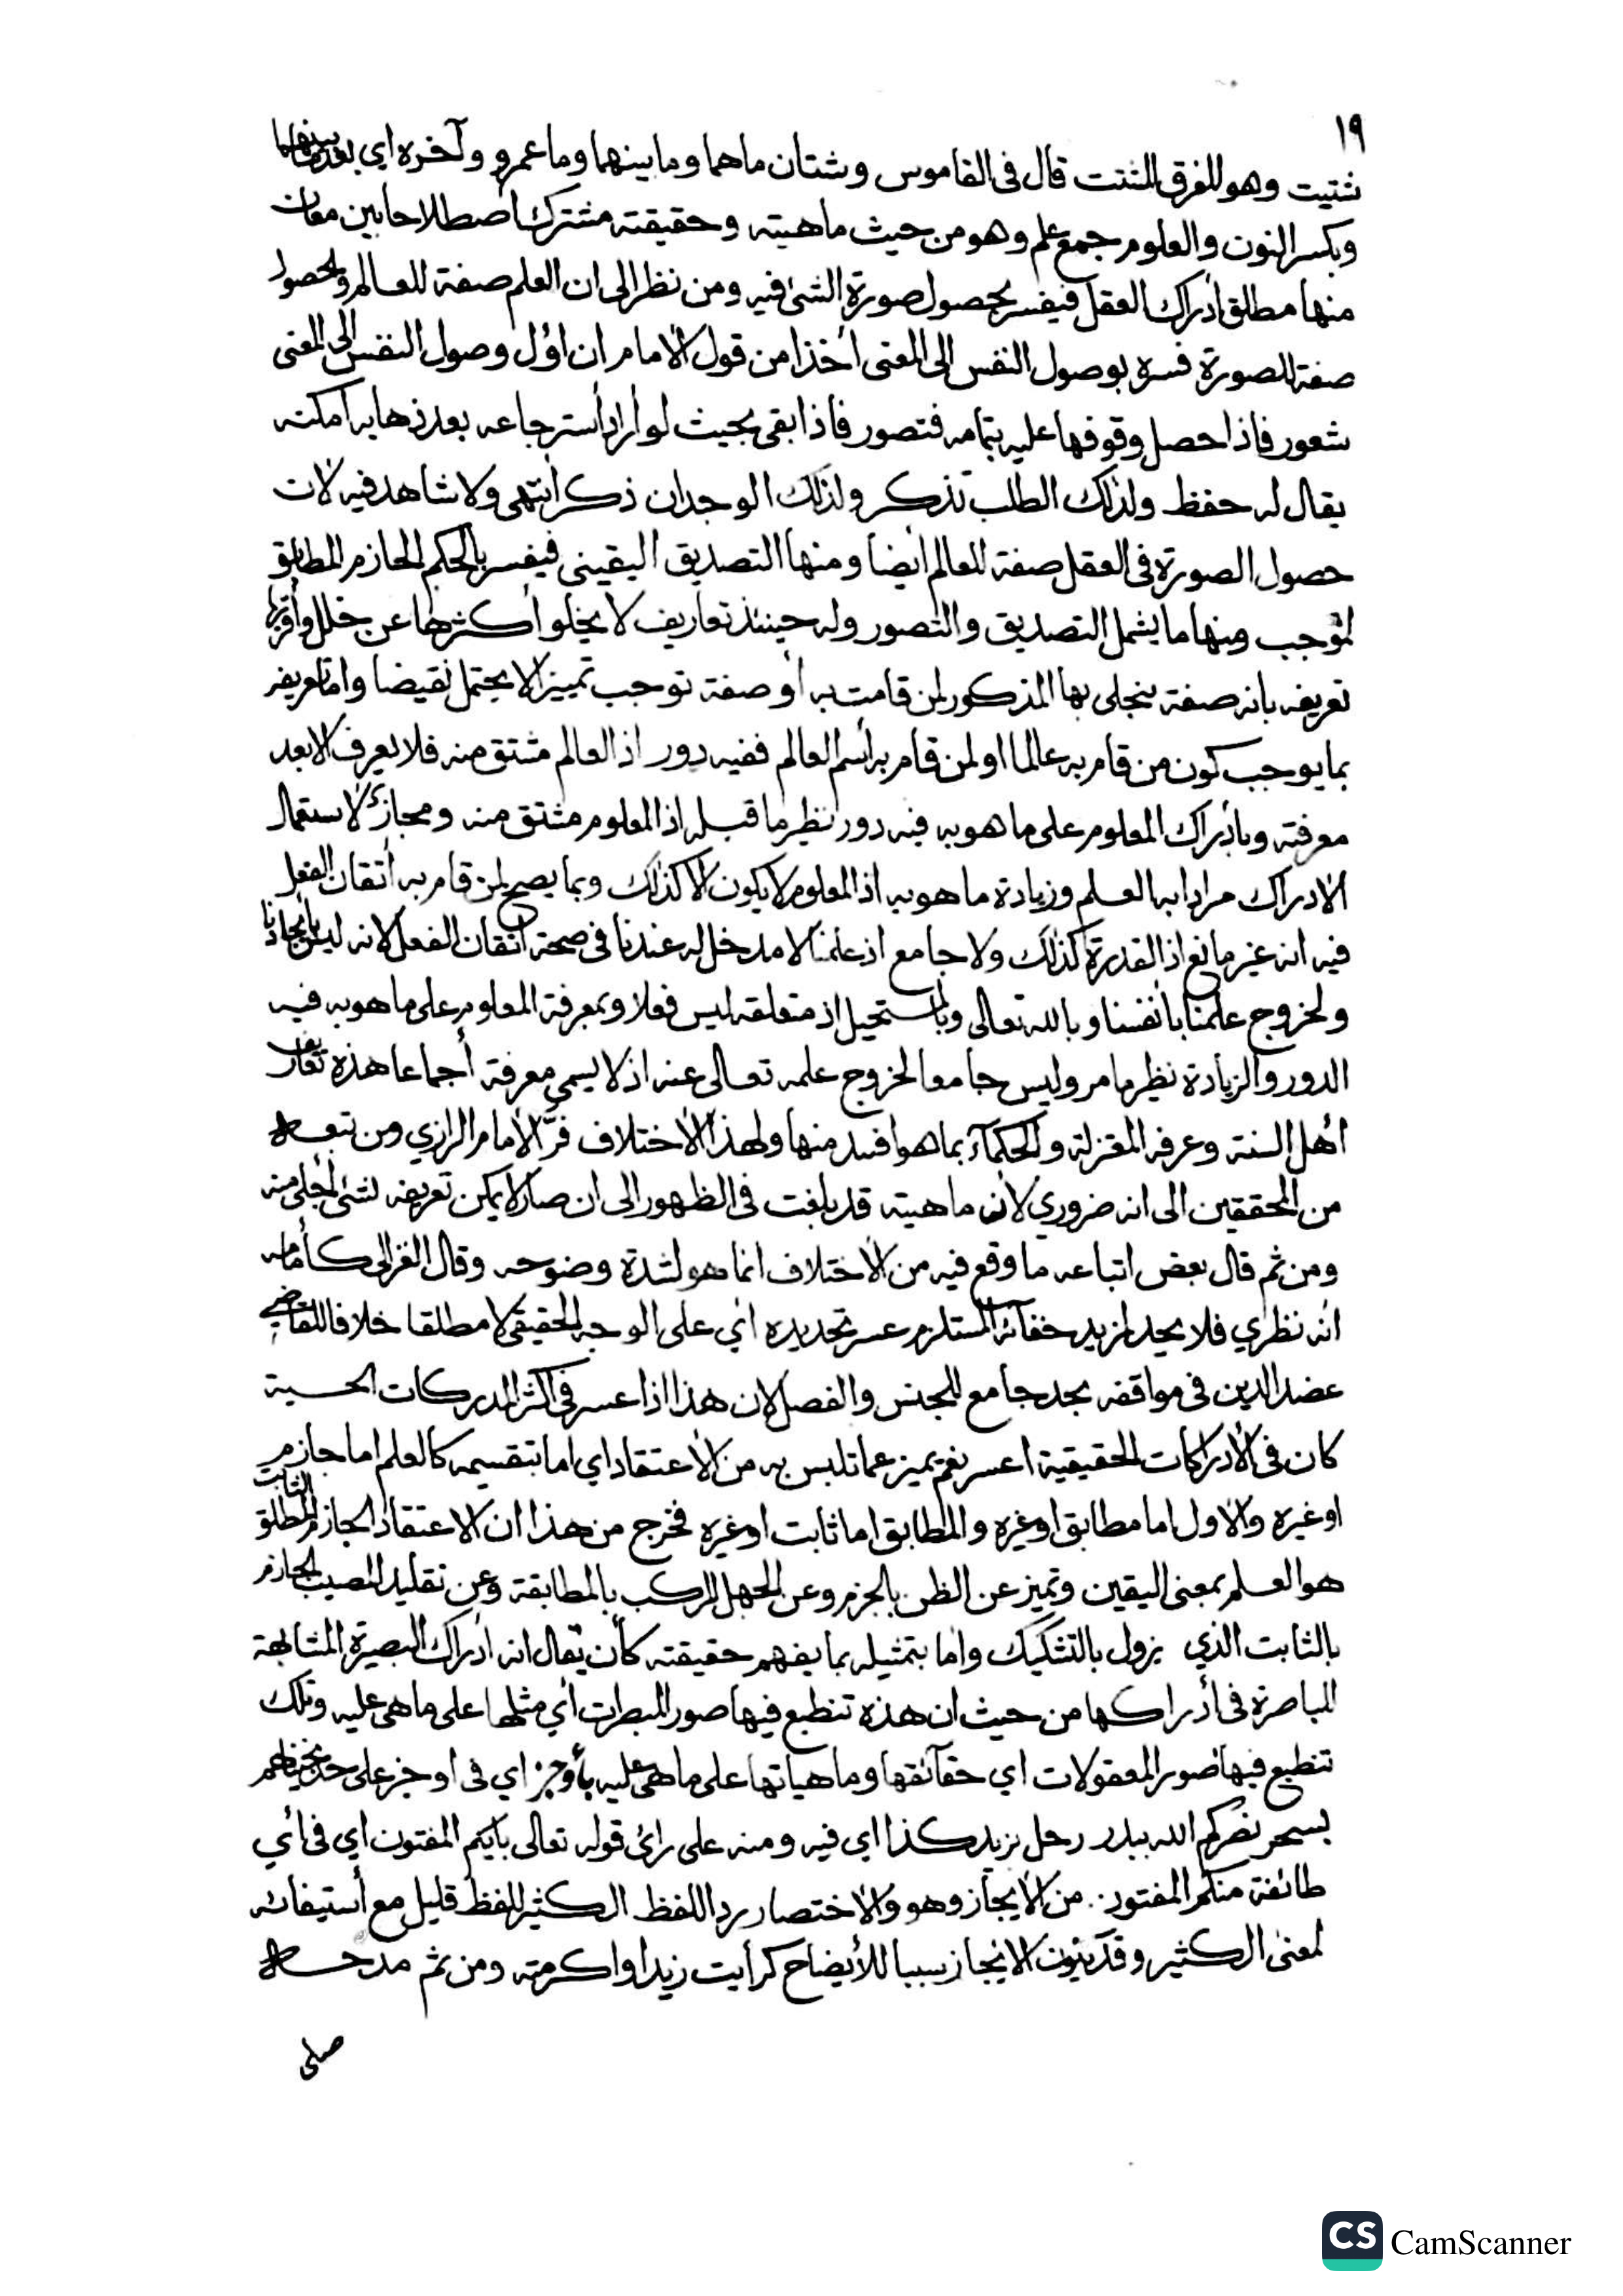 ١٩
شتيت وهو للفرق المشتت قال في القاموس وشتان ماهما وما بينهما وما عمرو وآخره اي بعد ما بينهما
وبكسر النون والعلوم جمع علم وهو من حيث ماهيته وحقيقته مشترك اصطلاحا بين معان
منها مطلق ادراك العقل فيفسر بحصول صورة الشئ فيه ومن نظر الى ان العلم صفة للعالم والحصول
صفة للصورة فسره بوصول النفس الى المعنى اخذا من قول الامام ان اول وصول النفس الى المعنى
شعور فاذا حصل وقوفها عليه بتمامه فتصور فاذا بقى بحيث لو اراد استرجاعه بعد ذهابه امكنه
يقال له حفظ ولذلك الطلب تذكر ولذلك الوجدان ذكر انتهى ولا شاهد فيه لان
حصول الصورة في العقل صفة للعالم ايضا ومنها التصديق اليقيني فيفسر بالحكم الجازم المطابق
لموجب ومنها ما يشمل التصديق والتصور وله حينئذ تعاريف لا يخلو اكثرها عن خلل واقربها
تعريفه بانه صفة ينجلى بها المذكور لمن قامت به أو صفة توجب تمييزا لا يحتمل نقيضا واما تعريفه
بما يوجب كون من قام به عالما او لمن قام به اسم العالم ففيه دور اذ العالم مشتق منه فلا يعرف الا بعد
معرفته وبادراك المعلوم على ما هو به فيه دور نظير ما قبله اذ المعلوم مشتق منه ومجاز لاستعمال
الادراك مرادا به العلم وزيادة ما هو به اذ المعلوم لا يكون الا كذلك وبما يصح لمن قام به اتقان الفعل
فيه انه غير مانع اذ القدرة كذلك ولا جامع اذ علمنا لا مدخل له عندنا في صحة اتقان الفعل لانه ليس بايجادنا
ولخروج علمنا بانفسنا وبالله تعالى وبالمستحيل اذ متعلقه ليس فعلا وبمعرفة المعلوم على ما هو به فيه
الدور والزيادة نظير ما مر وليس جامعا لخروج علمه تعالى عنه اذ لا يسمى معرفة أجماعا هذه تعاريف
اهل السنة وعرفه المعتزلة والحكماء بما هو افسد منها ولهذا الاختلاف فرّ الامام الرازي ومن تبعه
من المحققين الى انه ضروري لان ماهيته قد بلغت في الظهور الى ان صار لا يمكن تعريفه لشئ اجلى منه
ومن ثم قال بعض اتباعه ما وقع فيه من الاختلاف انما هو لشدة وضوحه وقال الغزالى كأمامه
انه نظري فلا يحد لمزيد خفائه المستلزم عسر تحديده اي على الوجه الحقيقى لا مطلقا خلافا للقاضي
عضد الدين في مواقفه بحد جامع للجنس والفصل لان هذا اذا عسر في اكثر المدركات الحسية
كان في الادراكات الحقيقية اعسر نعم يميز عما تلبس به من الاعتقاد اي اما بتقسيمه كالعلم اما جازم
او غيره والاول اما مطابق او غيره والمطابق اما ثابت او غيره فخرج من هذا ان الاعتقاد الجازم المطلق الثابت
هو العلم بمعنى اليقين وتميز عن الظن بالجزم وعن الجهل المركب بالمطابقة وعن تقليد المصيب الجازم
بالثابت الذي يزول بالتشكيك واما بتمثيله بما يفهم حقيقته كأن يقال انه ادراك البصيرة المشابهة
للباصرة في أدراكها من حيث ان هذه تنطبع فيها صور المبصرات اي مثلها على ما هى عليه وتلك
تنطبع فيها صور المعقولات اي حقائقها وماهياتها على ما هى عليه بأوجز اي في اوجز على حد نجيناهم
بسحر نصركم الله ببدر رحل بزيد كذا اي فيه ومنه على راى قوله تعالى بايكم المفتون اي في أي
طائفة منكم المفتون من الايجاز وهو والاختصار رد اللفظ الكثير للفظ قليل مع أستيفائه
لمعنى الكثير وقد يكون الايجاز سببا للأيضاح كرأيت زيدا واكرمته ومن ثم مدحه
صلى
CS CamScanner